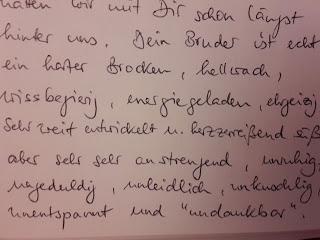 hatten wir mit Dir schon längst
hinter uns. Dein Bruder ist echt
ein harter Brocken, hellwach,
wissbegierig, energiegeladen, ehrgeizig
sehr weit entwickelt u. herzzerreißend süß
aber sehr sehr anstrengend, unruhig,
ungeduldig, unleidlich, unknuschlig,
unentspannt und "undankbar".